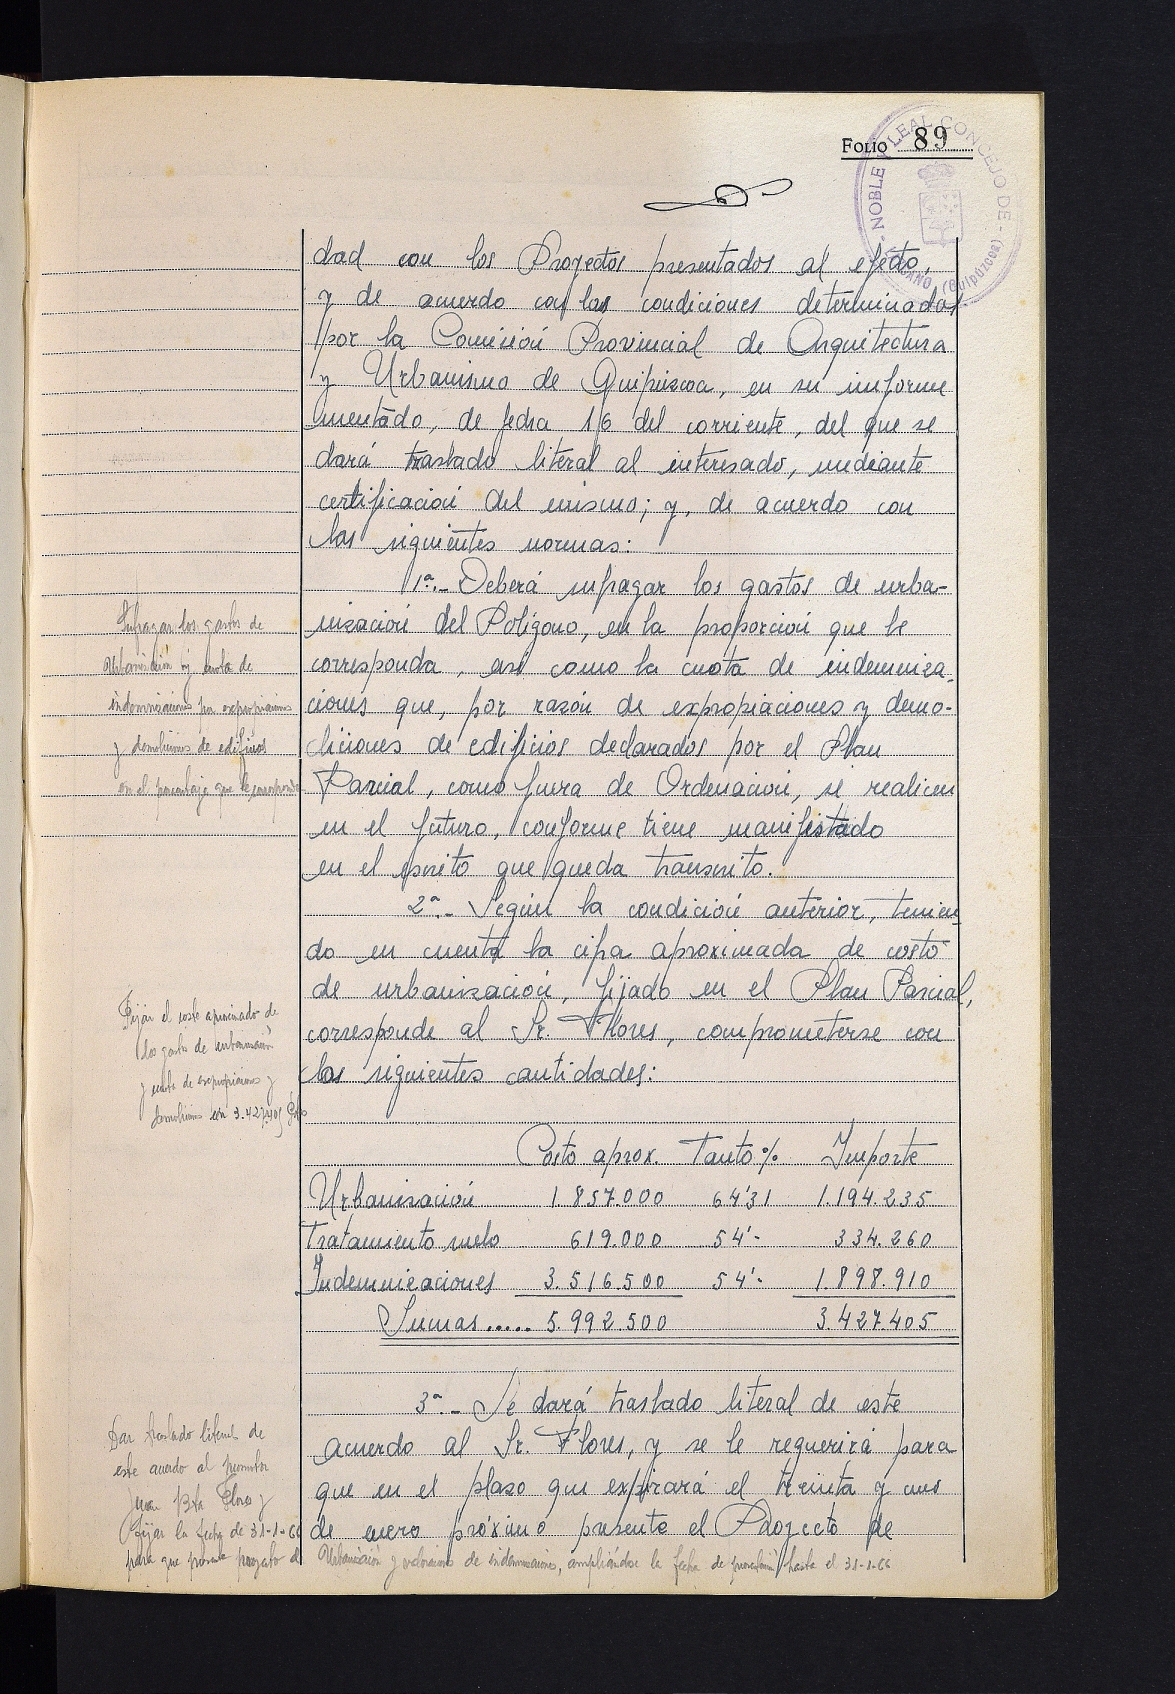 FOLIO 89
NOBLE Y LEAL CONCEJO DE
(Guipúzcoa)
dad con los Proyectos presentados al efecto,
y de acuerdo con las condiciones determinadas
por la Comisión Provincial de Arquitectura
y Urbanismo de Guipúzcoa, en su informe
mentado, de fecha 16 del corriente, del que se
dará traslado literal al interesado, mediante
certificación del mismo; y, de acuerdo con
las siguientes normas:
1ª.- Deberá sufragar los gastos de urba-
nización del Polígono, en la proporción que le
corresponda, así como la cuota de indemniza-
ciones que, por razón de expropiaciones y demo-
liciones de edificios declarados por el Plan
Parcial, como fuera de Ordenación, se realicen
en el futuro, conforme tiene manifestado
en el escrito que queda transcrito.
Sufragar los gastos de
Urbanización y cuota de
indemnizaciones por expropiaciones
y demoliciones de edificios
en el porcentaje que le corresponda
2ª.- Según la condición anterior, tenien-
do en cuenta la cifra aproximada de costo
de urbanización, fijado en el Plan Parcial,
corresponde al Sr. Flores, comprometerse con
las siguientes cantidades:
Fijar el coste aproximado de
los gastos de urbanización
y cuota de expropiaciones y
demoliciones en 3.427.405 Pts
Costo aprox. Tanto % Importe
Urbanización 1.857.000 64'31 1.194.235
Tratamiento suelo 619.000 54'- 334.260
Indemnizaciones 3.516.500 54'- 1.898.910
Sumas ..... 5.992.500 3.427.405
3ª.- Se dará traslado literal de este
acuerdo al Sr. Flores, y se le requerirá para
que en el plazo que expirará el treinta y uno
de enero próximo presente el Proyecto de
Dar traslado literal de
este acuerdo al promotor
Juan Bta Flores y
fijar la fecha de 31-1-66
para que presente proyecto de Urbanización y valoraciones de indemnizaciones, ampliándose la fecha de presentación hasta el 31-1-66